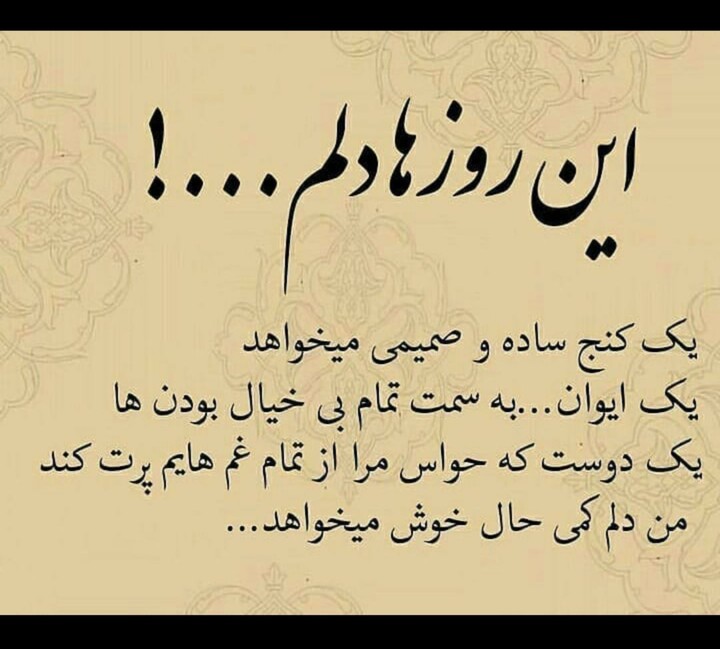 این روزها دلم....!
یک کنج ساده و صمیمی میخواهد
یک ایوان...به سمت تمام بی خیال بودن ها
یک دوست که حواس مرا از تمام غم هایم پرت کند
من دلم کمی حال خوش میخواهد...